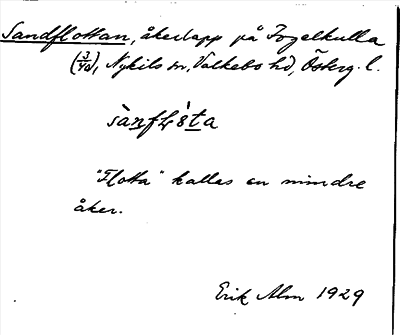 Sandflottan, åkerlapp på Fogelkulla
(3/4a), Nykils sn, Valkebo hd, Österg. l.
sànflòta
"Flotta" kallas en mindre
åker.
Erik Alm 1929